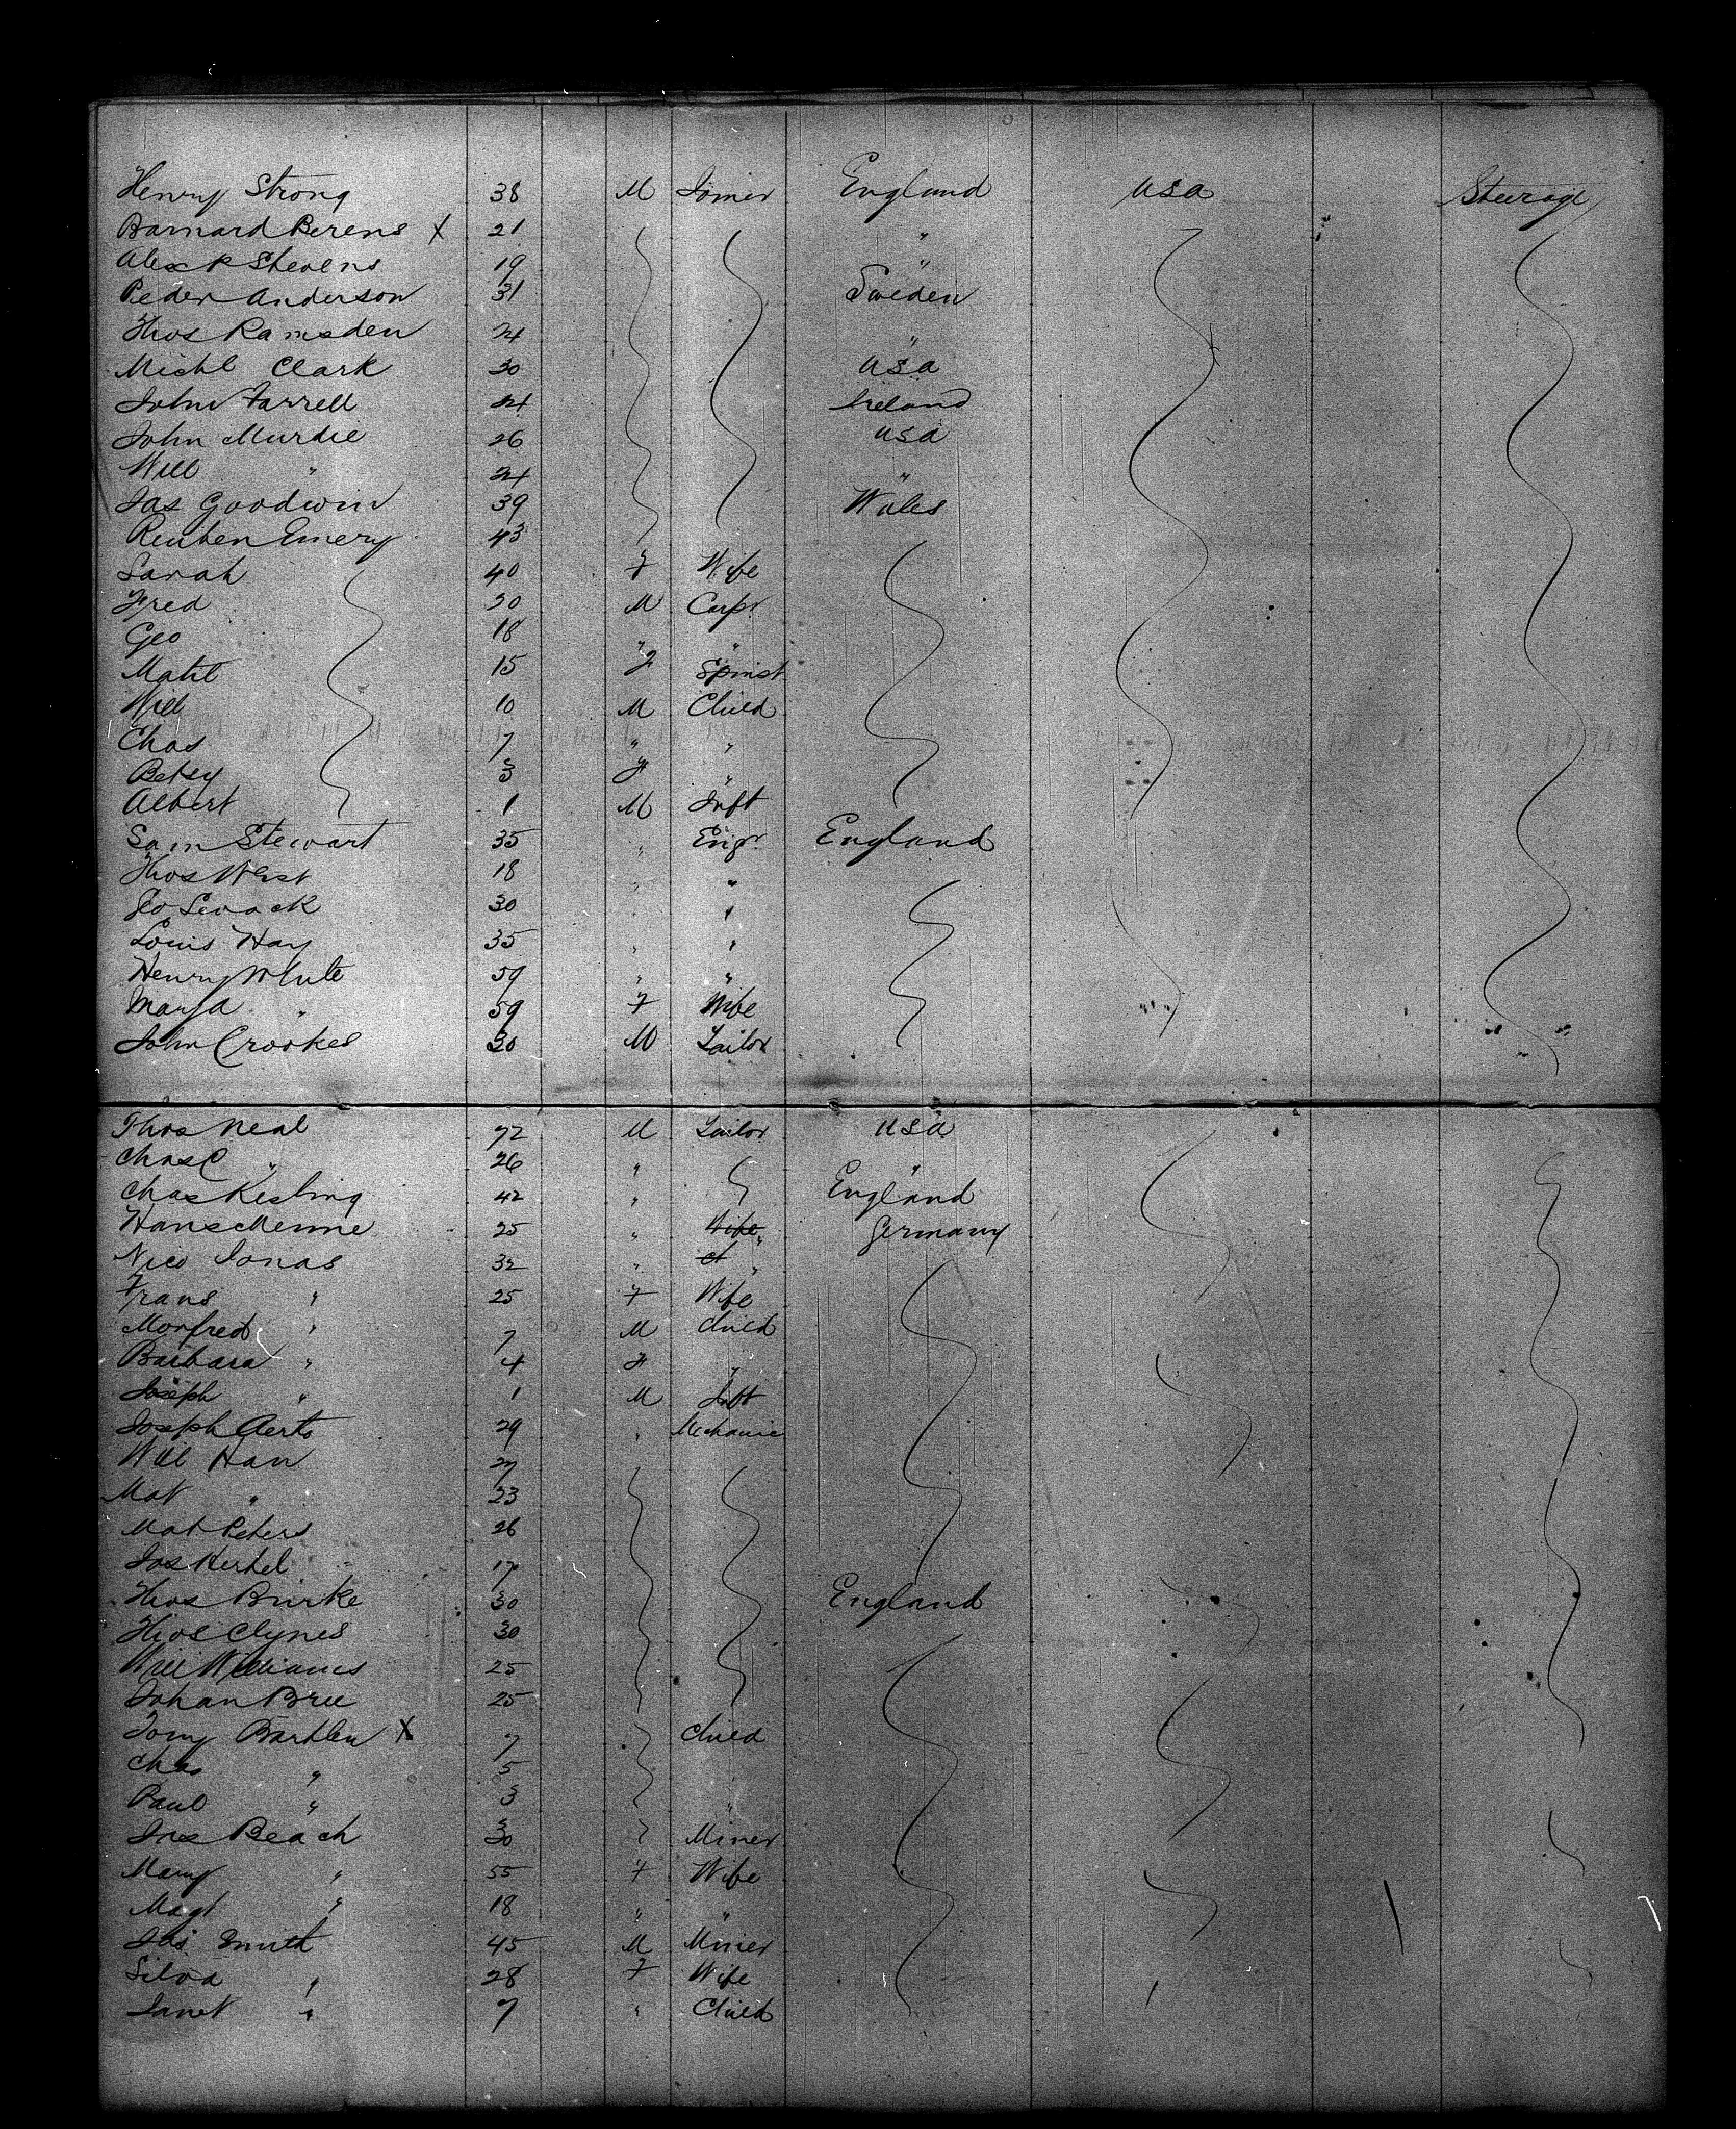 Henry Strong 38 M Joiner England USA Steerage
Barnard Berens X 21 "
Alex R Stevens 19 "
Peder Anderson 31 Sweden
Thos Ramsden 24 "
Michl Clark 30 USA
John Farrell 21 Ireland
John Murdie 26 USA
Will " 24 "
Jas Goodwin 39 Wales
Reuben Emery 43
Sarah 40 F Wife
Fred 20 M Carpr
Geo 18 " "
Matit 15 F Spinst
Will 10 M Child
Chas 7 " "
Betsy 3 F "
Albert 1 M Inft
Sam Stewart 35 " Engr England
Thos West 18 " "
Geo 30 " "
Louis Hay 35 " "
Henry White 59 " "
Mary A " 59 F Wife
John Crookes 30 M Tailor
Thos Neal 72 M Tailor USA
Chas C " 26 " "
Chas Kesling 42 " England
Hans Menne 25 " Wife " Germany
Nico Jonas 32 " "
Frans " 25 F Wife
Monfred " 7 M Child
Barbara " 4 F "
Joseph " 1 M Inft
Joseph Aerts 29 " Mechanic
Will Han 27
Mat " 23
Mat Peters 26
Jos Hertel 17
Thos Burke 30 England
Thos Clynes 30
Will Williams 25
Johan Bree 25
Tony X 7 Child
Chas " 5
Paul " 3 "
Jas Beach 30 Miner
Mary " 55 F Wife
Magt " 18 " "
Jas Smith 45 M Miner
Silva " 28 F Wife
Janet " 7 " Child